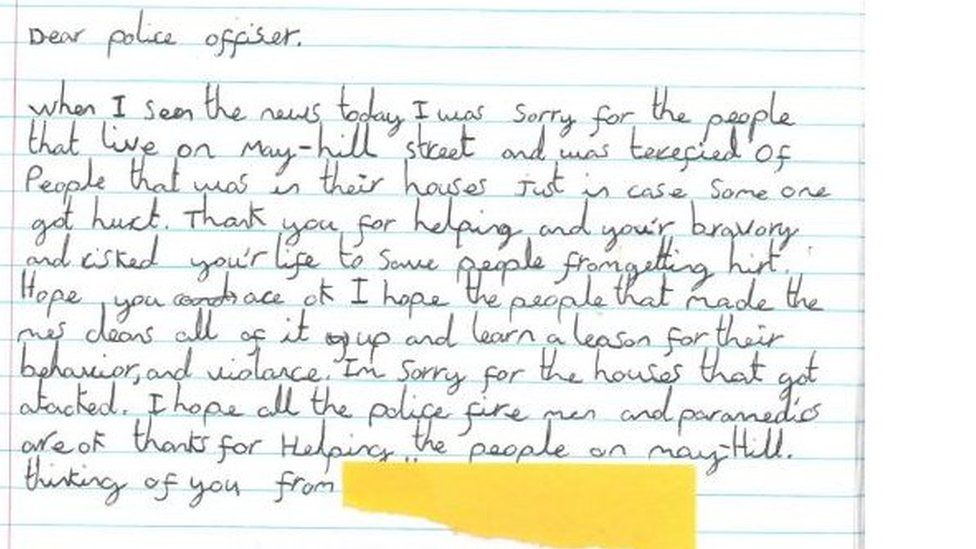 Dear police offiser.
when I seen the news today I was sorry for the people
that live on May-hill street and was terefied of
People that was in their houses Just in case some one
got hurt. Thank you for helping and you'r bravory
and risked you'r life to save people from getting hirt.
Hope you are ok I hope the people that made the
mes cleans all of it up and learn a leason for their
behavior, and violance. Im sorry for the houses that got
atacked. I hope all the police fire men and paramedics
are ok thanks for Helping the people on may-Hill.
thinking of you from